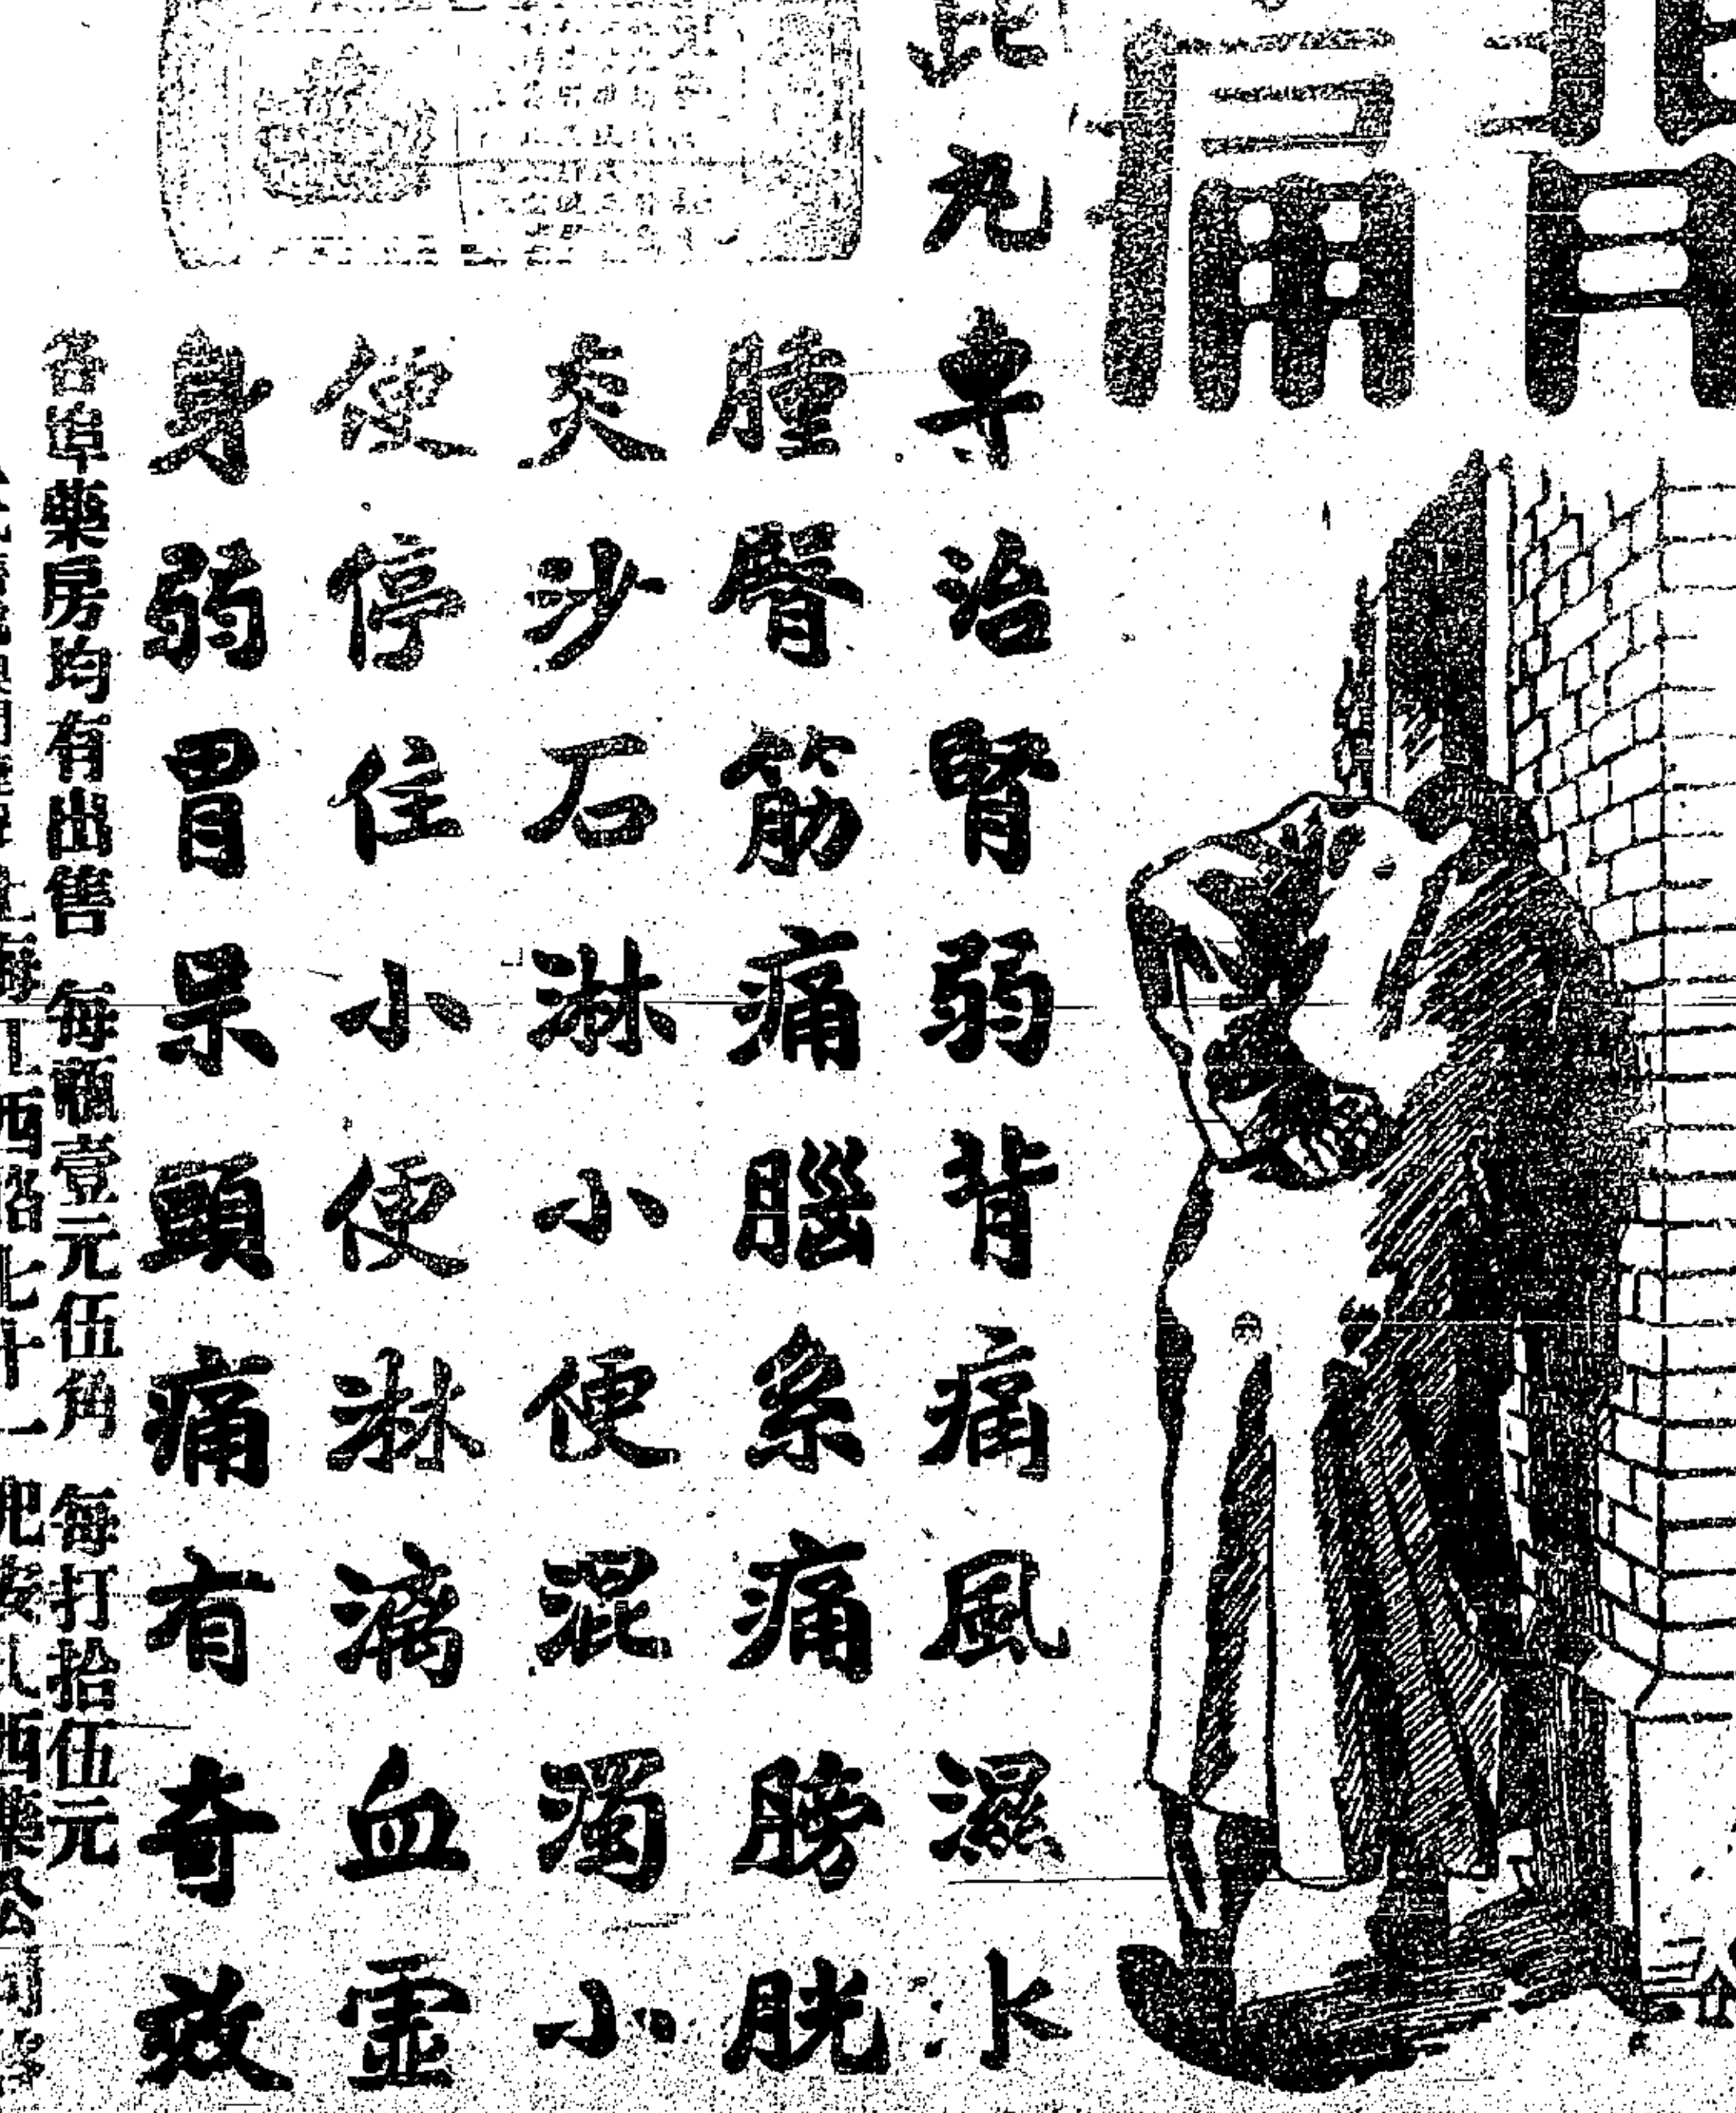 丸專治腎弱背痛風濕水
腫臀筋痛腦系痛膀胱
炎沙石淋小便混濁小
便停住小便淋漓血虛
身弱胃呆頭痛有奇效
各埠藥房均有出售 每瓶壹元伍角 每打拾伍元
海江西路七十一 兜安氏西藥公司